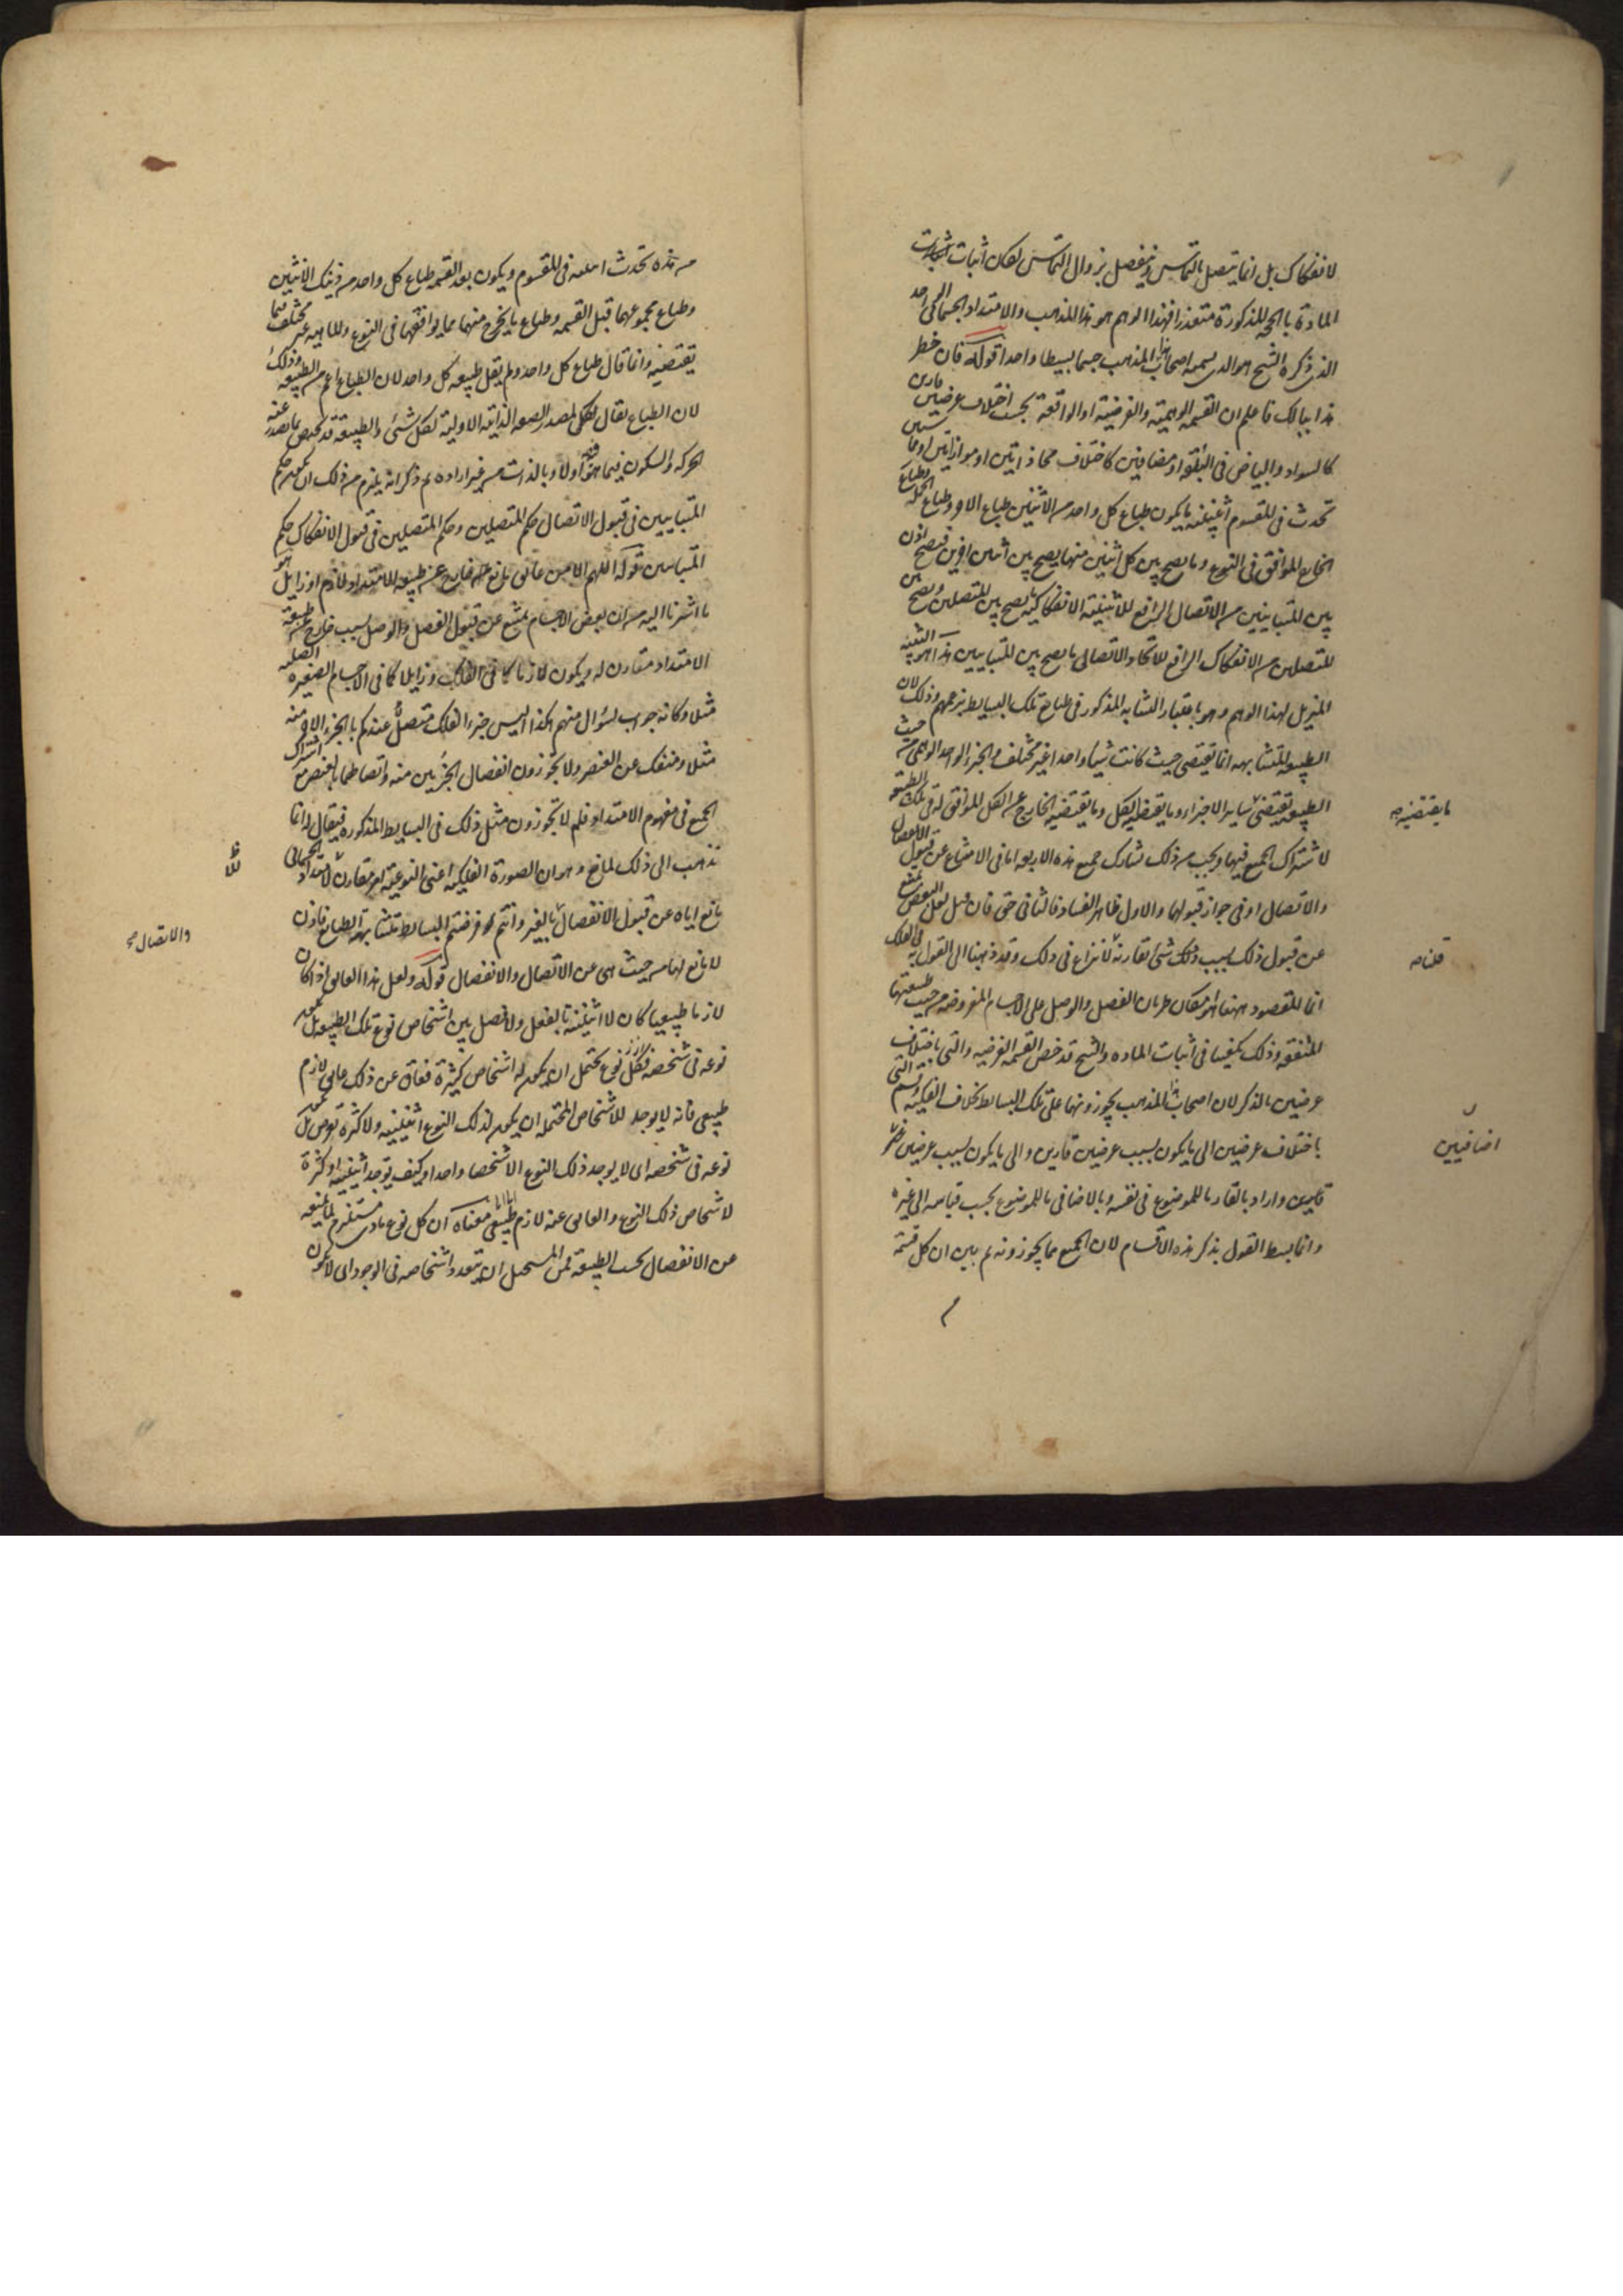 لانفكاك بل انما يتصل بالتماس وينفصل بزوال التماس لكان اثبات
المادة بالحجة المذكورة متعذرا فهذا الوهم هو هذا المذهب والامتداد الجسمانى
الذى ذكره الشيخ هو الذى يسميه اصحاب هذا المذهب جسما بسيطا واحدا قوله فان خطر
هذا ببالك فاعلم ان القسمة الوهمية والفرضية او الواقعة بحسب اختلاف عرضين قارين
كالسواد والبياض فى البلقة او مضافين كاختلاف محاذاتين او موازاتين او مماستين
تحدث فى المقسوم اثنينية ما يكون طباع كل واحد من الاثنين طباع الاخر وطباع الجملة وطباع
الخارج الموافق فى النوع وما يصح بين كل اثنين منها يصح بين اثنين اخرين فيصح اذن
بين المتباينين من الاتصال الرافع للاثنينية الانفكاكية ما يصح بين المتصلين ويصح بين
المتصلين من الانفكاك الرافع للاتحاد الاتصالى ما يصح بين المتباينين هذا هو التنبيه
المزيل لهذا الوهم وهو باعتبار التشابه المذكور فى طبايع تلك البسايط بزعمهم وذلك لان
الطبيعة المتشابهة انما تقتضى حيث كانت شيئا واحدا غير مختلف والجزء الواحد الوهمى من حيث
الطبيعة تقتضى ساير الاجزاء وما يقتضيه الكل وما يقتضيه الخارج عن الكل الموافق له فى تلك الطبيعة
لاشتراك الجميع فيها ويجب من ذلك تشارك جميع هذه الاربعة اما فى الامتناع عن قبول الانفصال
والاتصال او فى جواز قبولهما والاول ظاهر الفساد فالثانى حق فان قيل لعل البعض يمتنع
عن قبول ذلك بسبب شىء تقارنه لا نزاع فى ذلك وقد ذهبنا الى القول به فى الفلك
انما المقصود ههنا هو امكان طريان الفصل والوصل على الاجسام المفروضة من حيث طبيعتها
المتفقة وذلك يكفينا فى اثبات المادة والشيخ قد خص القسمة الفرضية والتى باختلاف
عرضين بالذكر لان اصحاب هذا المذهب يجوزونها على تلك البسايط بخلاف الفكية وقسم التى
باختلاف عرضين الى ما يكون بسبب عرضين قارين والى ما يكون بسبب عرضين غير
قارين واراد بالقار ما للموضوع فى نفسه وبالاضافى ما للموضوع بحسب قياسه الى غيره
وانما بسط القول بذكر هذه الاقسام لان الجميع مما يجوزونه ثم بين ان كل قسمة
ما يقتضيه صح
قلنا صح
اضافيين
من هذه تحدث اثنينية فى المقسوم ويكون بعد القسمة طباع كل واحد من ذينك الاثنين
وطباع مجموعهما قبل القسمة وطباع ما يخرج منهما مما يوافقهما فى النوع والماهية غير مختلف فيما
يقتضيه وانما قال طباع كل واحد ولم يقل طبيعة كل واحد لان الطباع اعم من الطبيعة وذلك
لان الطباع يقال لمصدر الصفة الذاتية الاولية لكل شئ والطبيعة قد تختص بما تصدر عنه
الحركة والسكون فيما هو فيه اولا وبالذات من غير ارادة ثم ذكر انه يلزم من ذلك ان يكون حكم
المتباينين فى قبول الاتصال حكم المتصلين وحكم المتصلين فى قبول الانفكاك حكم
المتباينين قوله اللهم الا من عائق مانع خارج عن طبيعة الامتداد لازم او زايل هو
ما اشرنا اليه من ان بعض الاجسام يمتنع عن قبول الفصل والوصل بسبب خارج عن طبيعة
الامتداد مقارن له ويكون لازما كما فى الفلك وزايلا كما فى الاجسام الصغيرة الصلبة
مثلا وكانه جواب لسؤال منهم هكذا اليس جزء الفلك متصلا عندكم بالجزء الاخر منه
مثلا ومنفك عن العنصر ولا تجوزون انفصال الجزئين منه واتصالهما بالعنصر مع اشتراك
الجميع فى مفهوم الامتداد فلم لا تجوزون مثل ذلك فى البسايط المذكورة فيقال له انما
نذهب الى ذلك لمانع وهو ان الصورة الفلكية اعنى النوعية امر مقارن لامتداده الجسمانى
مانع اياه عن قبول الانفصال بالغير وانتم فرضتم البسايط متشابهة الطبايع فاذن
لا مانع لها من حيث هى عن الاتصال والانفصال قوله ولعل هذا العائق اذا كان
لازما طبيعيا كان لا اثنينية بالفعل ولا فصل بين اشخاص نوع تلك الطبيعة بل يكون
نوعه فى شخصه فكل نوع يحتمل ان يكون له اشخاص كثيرة فعاق عن ذلك عائق لازم
طبيعى فانه لا يوجد للاشخاص المحتملة ان يكون لذلك النوع اثنينية ولا كثرة تعرض بل يكون
نوعه فى شخصه اى لا يوجد ذلك النوع الا شخصا واحدا وكيف توجد اثنينية او كثرة
لاشخاص ذلك النوع والعائق عنه لازم طبيعى معناه ان كل نوع مادى مستلزم لما يمنعه
عن الانفصال بحسب الطبيعة فمن المستحيل ان يتعدد اشخاصه فى الوجود اى لا يكون
والاتصال صح